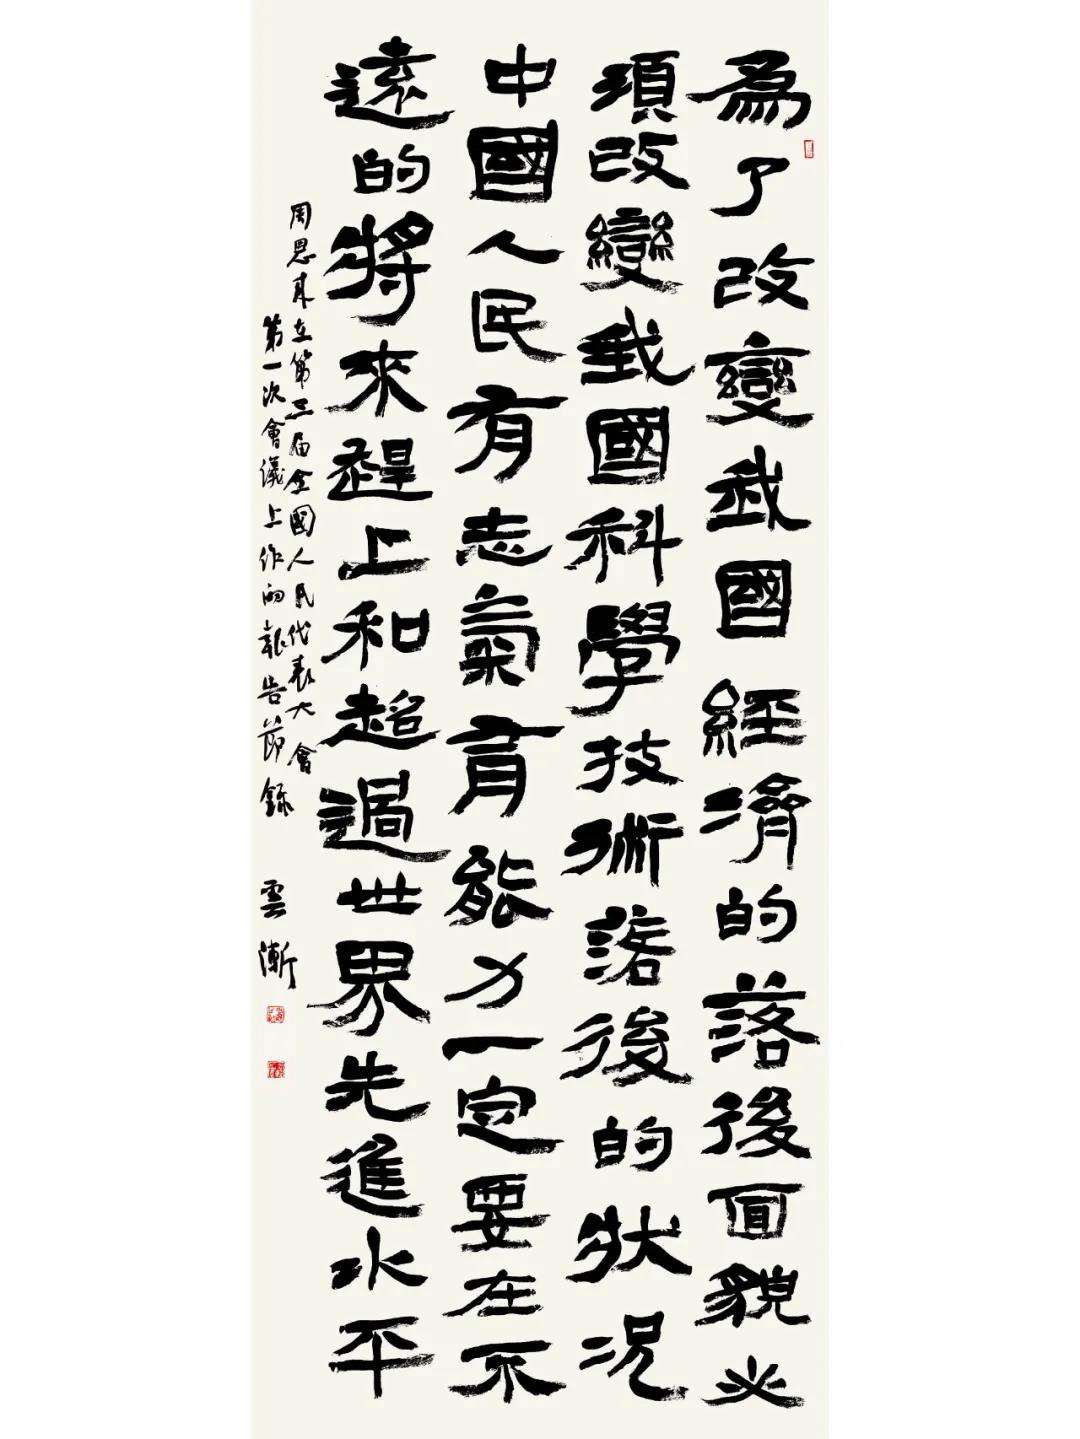 為了改變我國經濟的落後面貌必
須改變我國科學技術落後的狀況
中國人民有志氣有能力一定要在不
遠的將來趕上和超過世界先進水平
周恩來在第三屆全國人民代表大會
第一次會議上作的報告節錄
雲漸